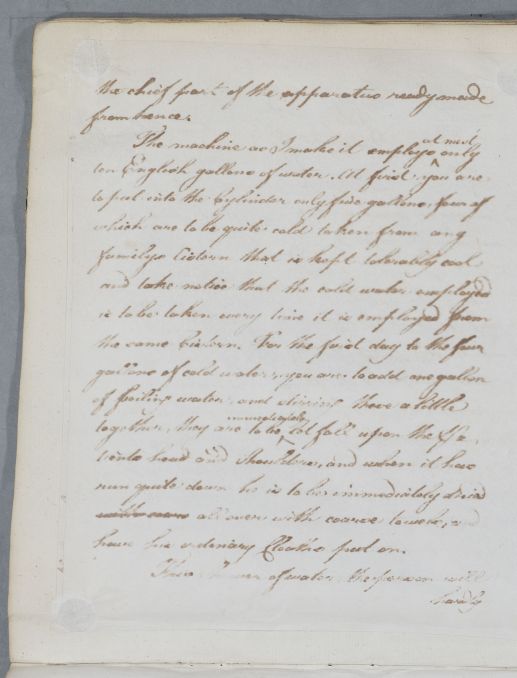 the chief part of the apparatus ready made
from hence.
The machine as I make it employs at most only
ten English gallons of water. At first you are
to put into the Cylinder only five gallons, four of
which are to be quite cold taken from any
familys Cistern that is kept tolerably cool
and take notice that the cold water employed
is to be taken every time it is employed from
the same Cistern. For the first day to the four
gallons of cold water, you are to add one gallon
of boiling water and stirring these a little
together, they are to be immediately let fall upon the
head and Shoulders, and when it has
run quite down he is to be immediately dried
all over with coarse towels, and
have his ordinary Cloaths put on.
This Shower of water the person will
hardly